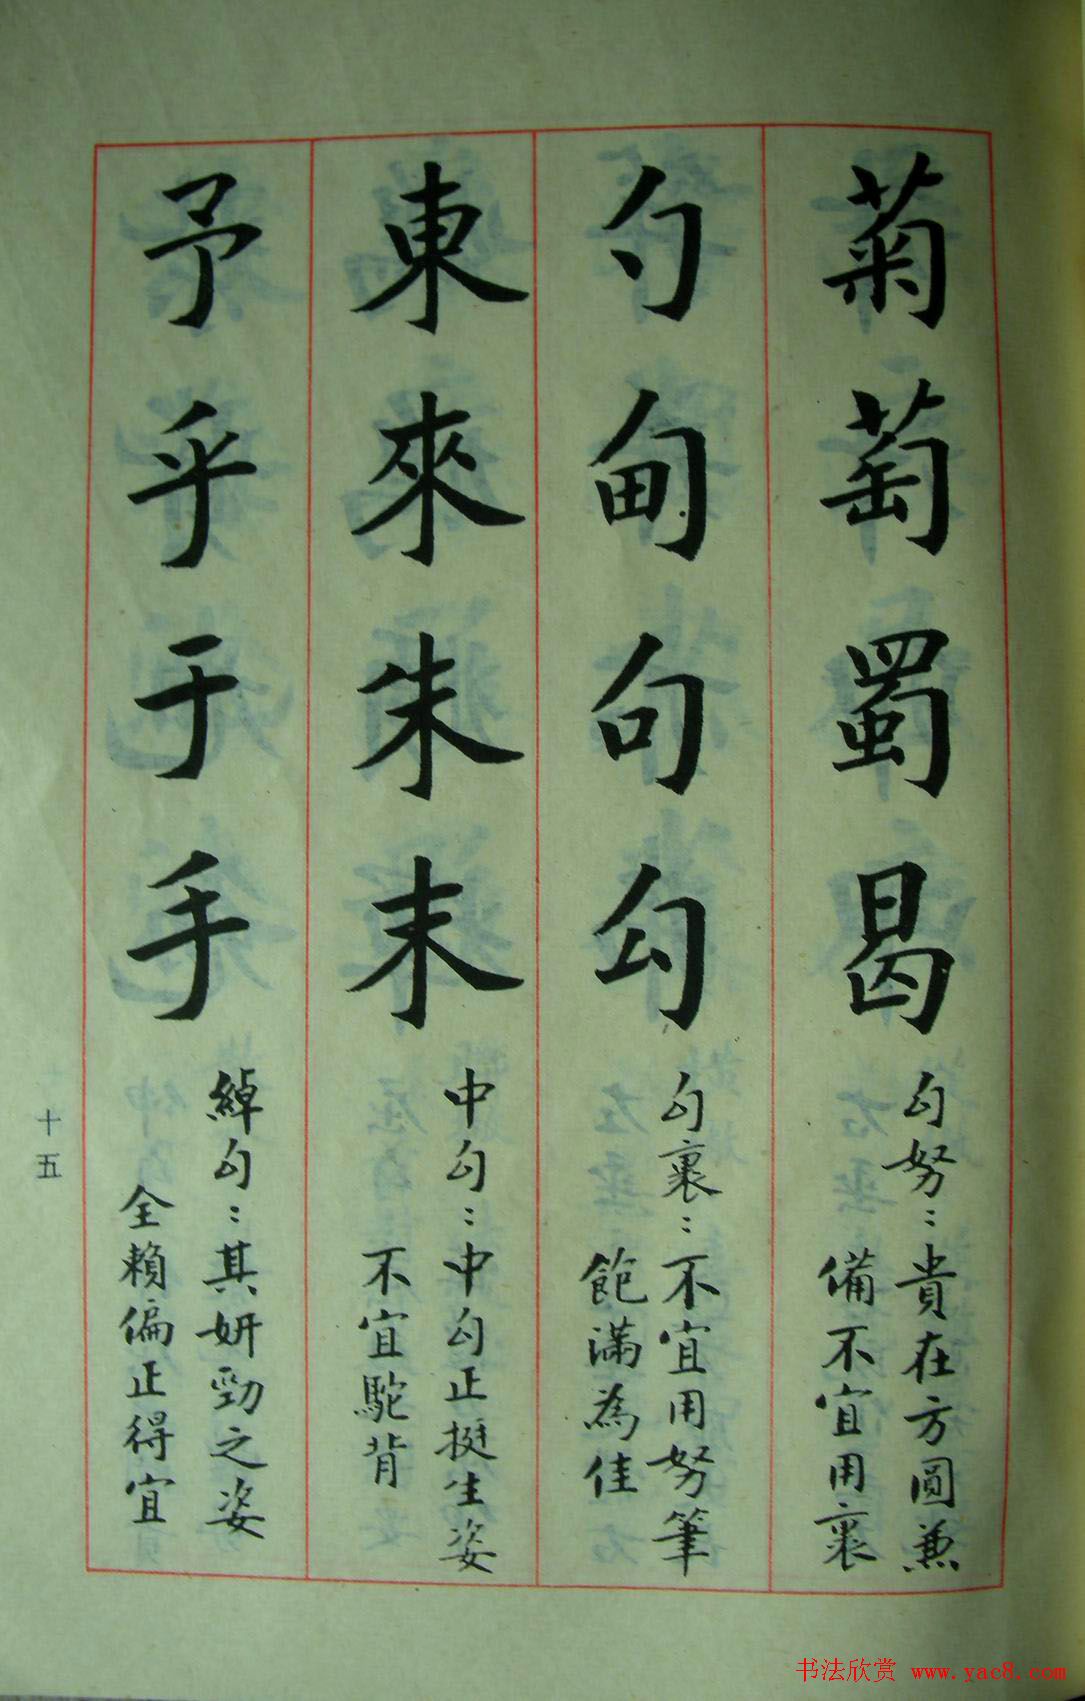 菊萄蜀曷
勾努：貴在方圓兼
備不宜用裹
勺甸句勾
勾裹：不宜用努筆
飽滿為佳
東來朱末
中勾：中勾正挺生姿
不宜駝背
予乎于手
綽勾：其妍勁之姿
全賴偏正得宜
十五
书法欣赏 www.yac8.com